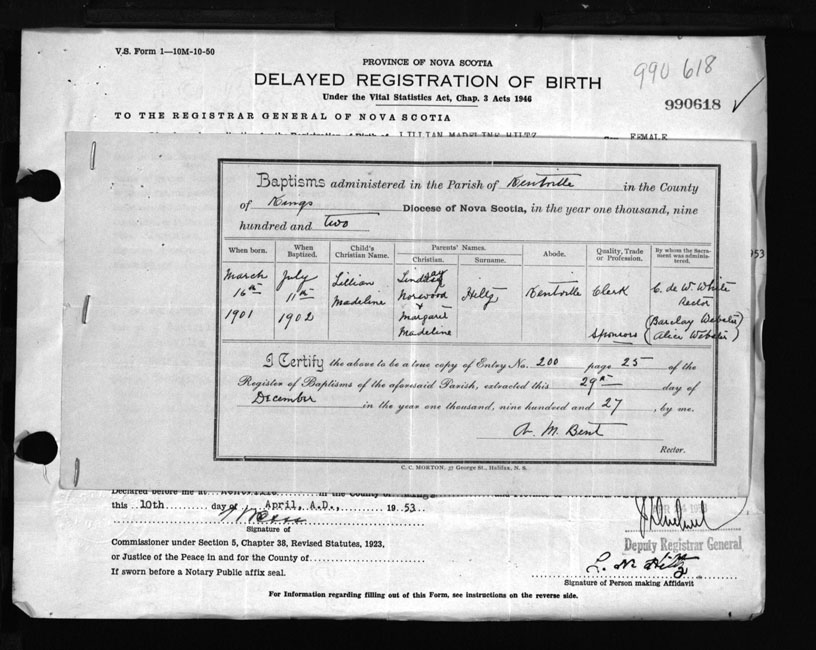 V.S. Form 1—10M-10-50
PROVINCE OF NOVA SCOTIA
990 618
DELAYED REGISTRATION OF BIRTH
Under the Vital Statistics Act, Chap. 3 Acts 1946
990618
TO THE REGISTRAR GENERAL OF NOVA SCOTIA
LILLIAN MADELINE HILTZ FEMALE
Baptisms administered in the Parish of Kentville in the County
of Kings Diocese of Nova Scotia, in the year one thousand, nine
hundred and two
When born. When Baptized. Child's Christian Name. Parents' Names. Christian. Surname. Abode. Quality, Trade or Profession. By whom the Sacrament was administered.
March 16th 1901 July 11th 1902 Lillian Madeline Lindsay Norwood + Margaret Madeline Hiltz Kentville Clerk C. de W. White Rector
Sponsors (Barclay Webster) (Alice Webster)
I Certify the above to be a true copy of Entry No. 200 page 25 of the
Register of Baptisms of the aforesaid Parish, extracted this 29th day of
December in the year one thousand, nine hundred and 27, by me.
A. M. Bent
Rector.
C. C. MORTON, 27 George St., Halifax, N. S.
53
Declared before me at Kentville in the County of
this 10th day of April, A.D., 1953
Signature of
Commissioner under Section 5, Chapter 38, Revised Statutes, 1923,
or Justice of the Peace in and for the County of
If sworn before a Notary Public affix seal.
Deputy Registrar General
L. M. Hiltz
Signature of Person making Affidavit
For Information regarding filling out of this Form, see instructions on the reverse side.